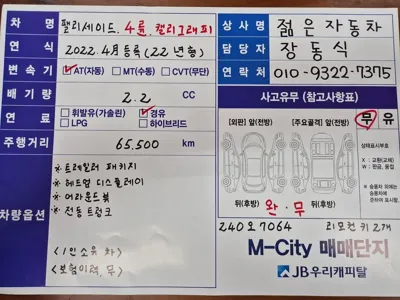 차 명 팰리세이드. 4륜. 캘리그래피
연 식 2022.4月등록 (22년형)
변속기 ☑AT(자동) □MT(수동) □CVT(무단)
배기량 2.2 CC
연 료 □휘발유(가솔린) ☑경유
□LPG □하이브리드
주행거리 65,500 km
차량옵션
※ 트레일러 패키지
※ 헤드업 디스플레이
※ 어라운드뷰
※ 전동트렁크
<1인소유 차>
<보험이력.무>
상 사 명 젊은자동차
담 당 자 장동식
연 락 처 010-9322-7375
사고유무 (참고사항표)
[외판] 앞(전방) [주요골격] 앞(전방)
무 유
상태표시부호
X : 교환(교체)
W : 판금, 용접
뒤(후방) 뒤(후방)
완.무
240오7064 리모컨키2개
M-City 매매단지
JB우리캐피탈